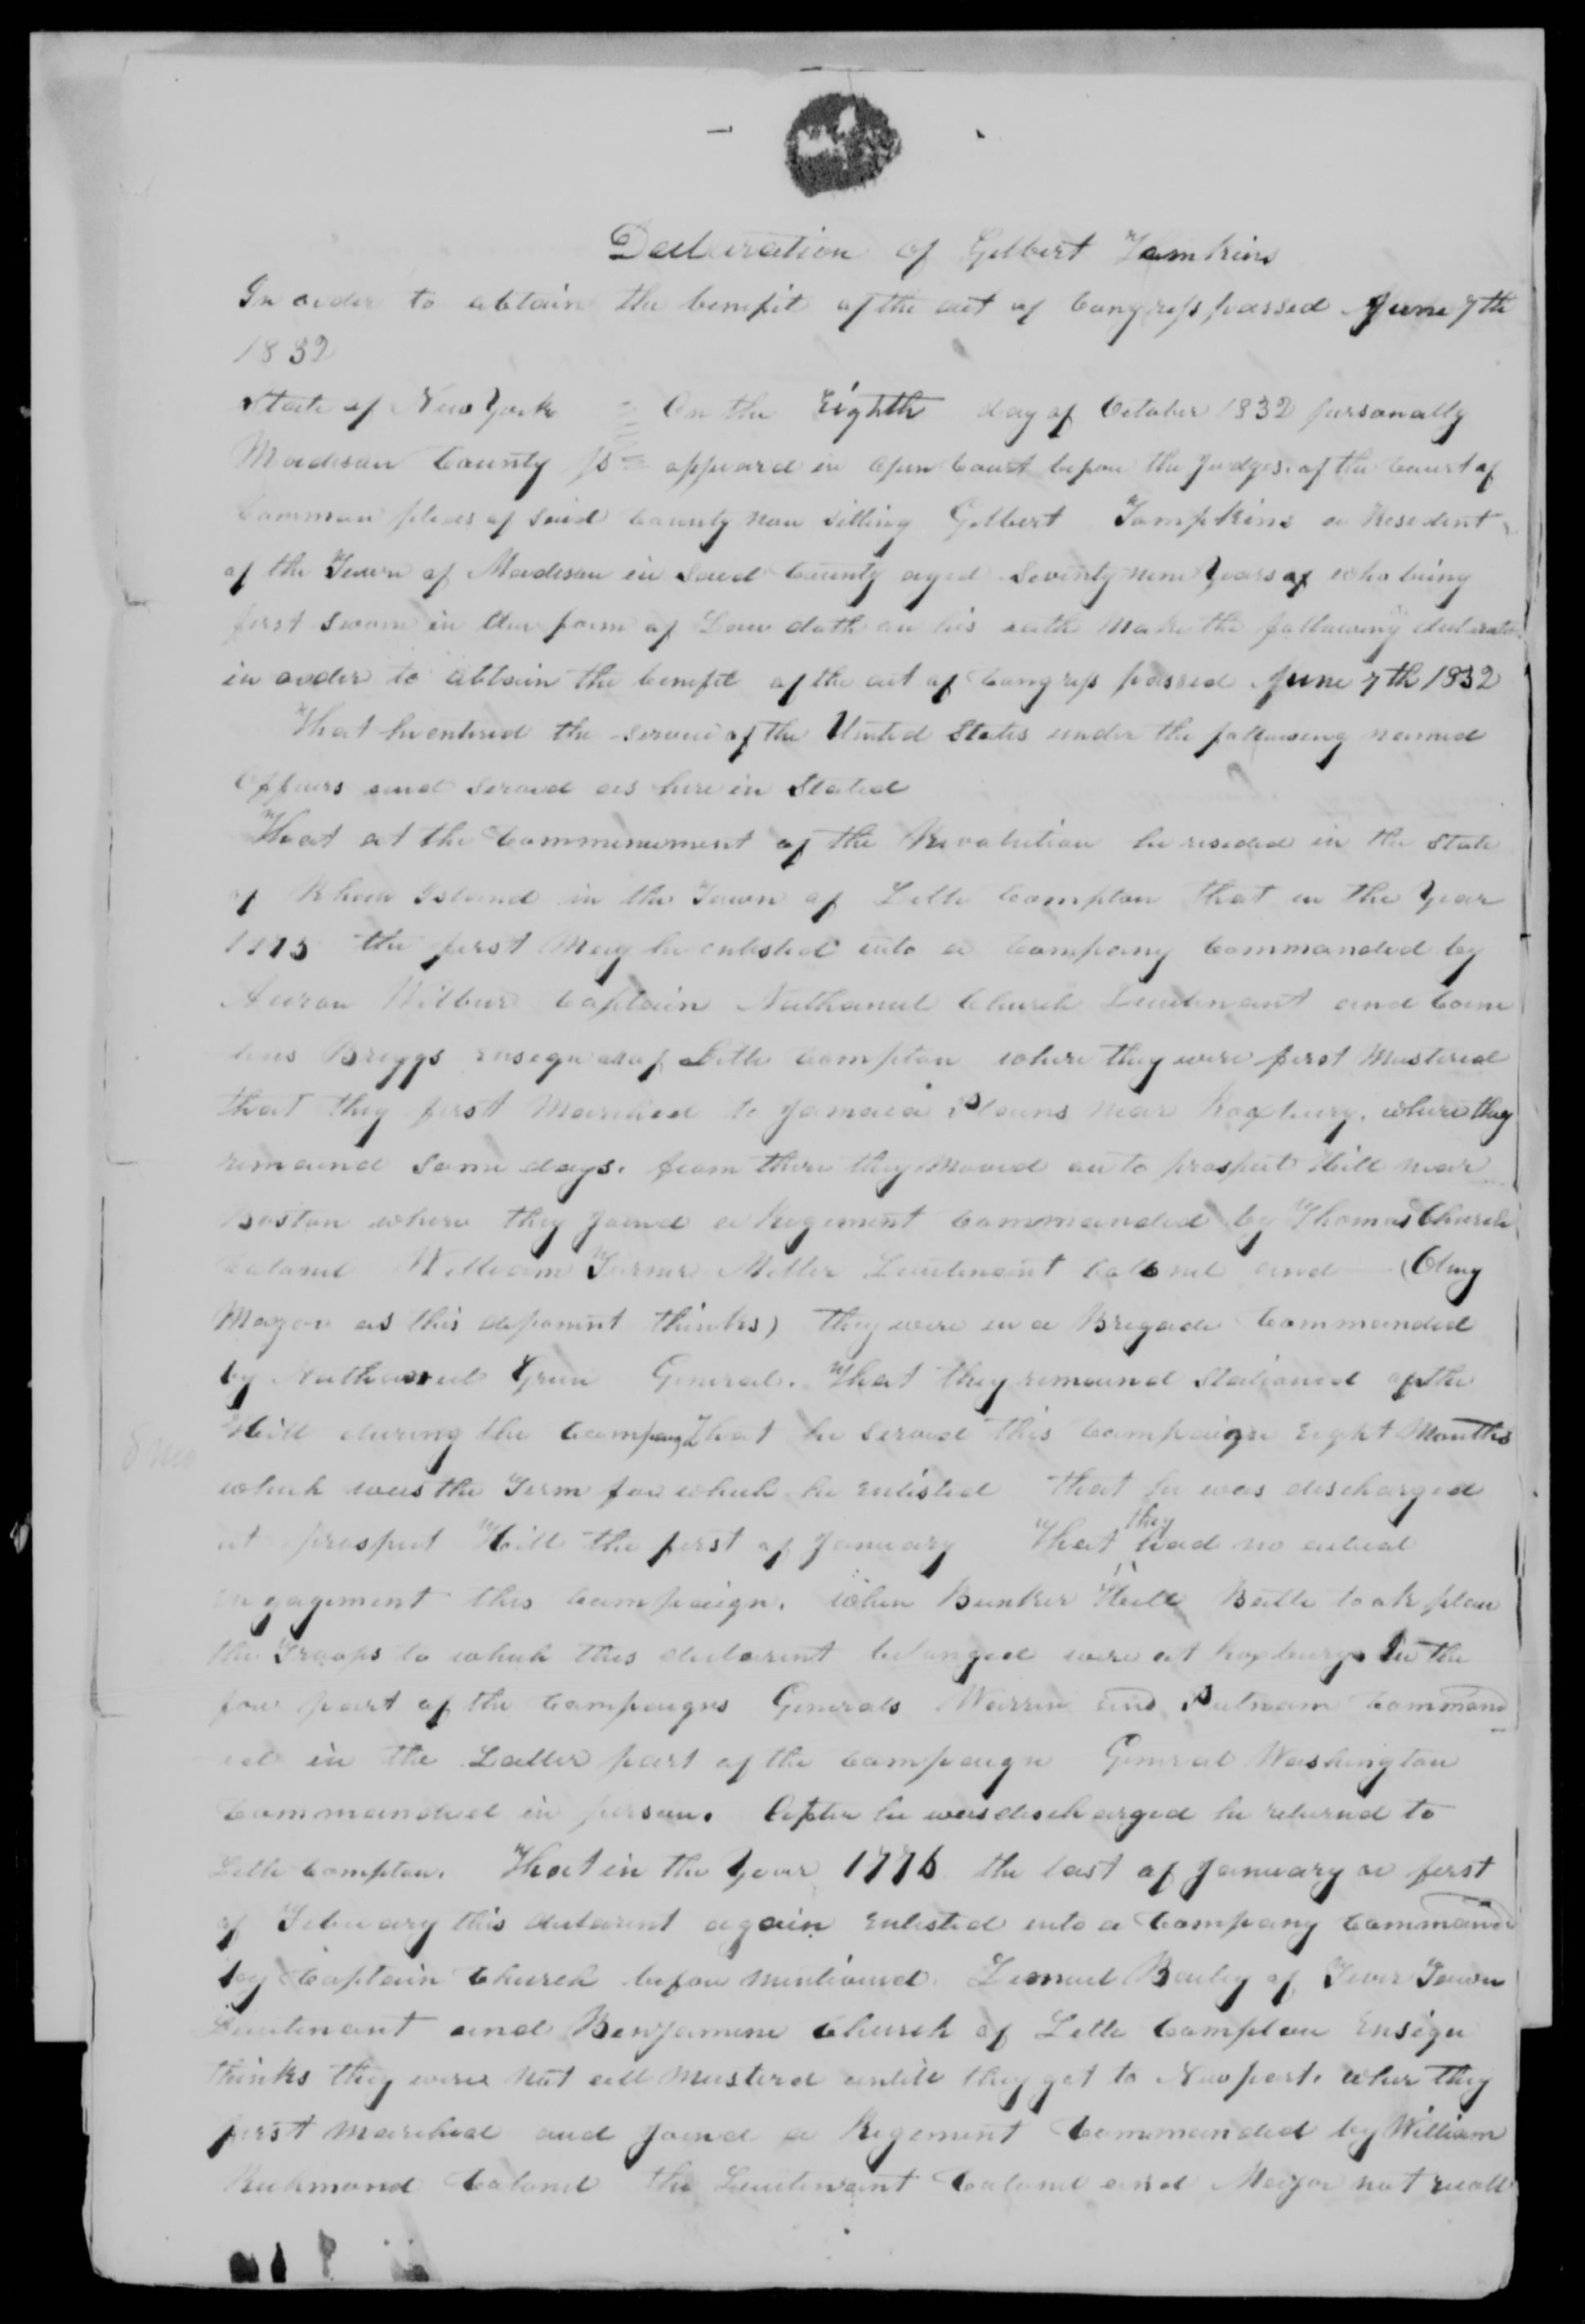 Declaration of Gilbert Tomkins
In order to obtain the benefit of the act of Congress passed June 7th
1832
State of New York On the Eighth day of October 1832 personally
Madison County ss appeard in Open Court before the Judges of the Court of
Common pleas of said County now sitting Gilbert Tompkins a Resident
of the Town of Madison in said County aged Seventy nine Years who being
first sworn in due form of Law doth on his oath make the following declaration
in order to obtain the benefit of the act of Congress passed June 7th 1832
That he entered the service of the United States under the following named
Officers and served as here in Stated
That at the Commencement of the Revolution he resided in the State
of Rhode Island in the Town of Little Compton that in the Year
1775 the first May he enlisted into a Company Commanded by
Aaron Wilbur Captain Nathaniel Church Lieutenant and Corne
lius Briggs ensign all of Little Compton where they were first Mustered
that they first Marched to Jamaica Plains near Roxbury. where they
remaind some days. from there they Moved on to prospect Hill near
Boston where they Joind a Regiment Commanded by Thomas Church
Colonel William Turner Miller Lieutenant Colonel and (Olney
Major as this deponent thinks) they were in a Brigade Commanded
by Nathaniel Green General. That they remaind Stationed at the
Hill during the Campaign That he served this Campaign Eight Months
8 mo
which was the Term for which he enlisted that he was discharged
at prospect Hill the first of January That they had no actual
engagement this Campaign. When Bunker Hill Battle took place
the Troops to which this declarent belonged were at Roxbury. In the
fore part of the Campaigns Generals Warren and Putnam Command
ed in the Latter part of the Campaign General Washington
Commanded in person. After he was discharged he returnd to
Little Compton. That in the Year 1776 the last of January or first
of February this declarent again Enlisted into a Company Command
by Captain Church before mentioned Lemuel Bailey of Tiver Town
Lieutenant and Benjamine Church of Little Compton Ensign
thinks they were Not all Musterd untill they got to Newport. where they
first Marched and Joind a Regiment Commanded by William
Richmond Colonel the Lieutenant Colonel and Major not recoll